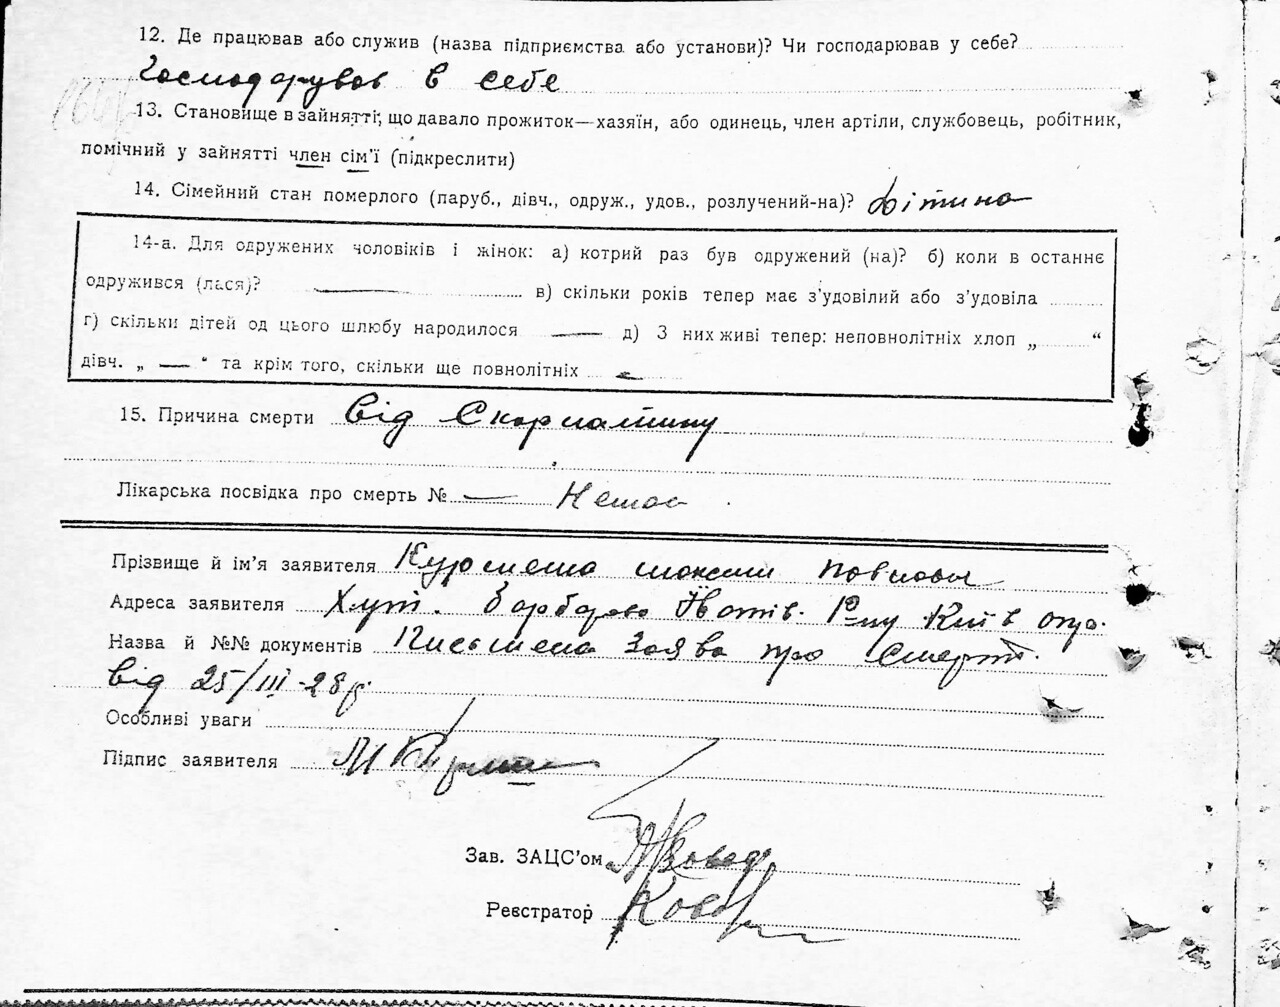 12. Де працював або служив (назва підприємства або установи)? Чи господарював у себе?
Господарував в себе
13. Становище в зайнятті, що давало прожиток—хазяїн, або одинець, член артіли, службовець, робітник,
помічний у зайнятті член сім'ї (підкреслити)
14. Сімейний стан померлого (паруб., дівч., одруж., удов., розлучений-на)? дітина
14-а. Для одружених чоловіків і жінок: а) котрий раз був одружений (на)? б) коли в останнє
одружився (лася)? — в) скільки років тепер має з'удовілий або з'удовіла
г) скільки дітей од цього шлюбу народилося — д) З них живі тепер: неповнолітніх хлоп „ “
дівч. „ — “ та крім того, скільки ще повнолітніх —
15. Причина смерти Від Скорлатини
Лікарська посвідка про смерть № — Немає
Прізвище й ім'я заявителя
Адреса заявителя Хут. Київ окр.
Назва й №№ документів Письмена Заява про смерть
від 25/III-28р.
Особливі уваги
Підпис заявителя
Зав. ЗАЦС'ом
Реєстратор